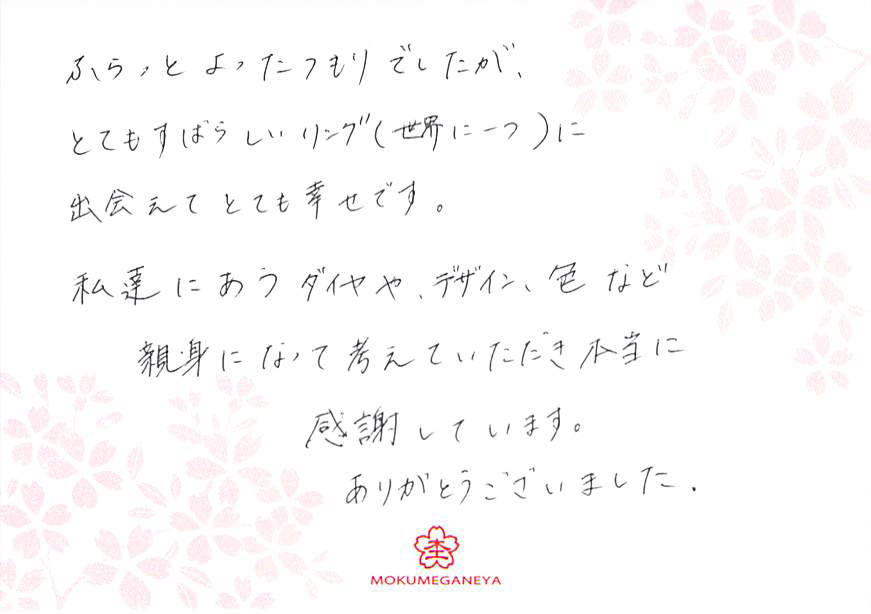 ふらっとよったつもりでしたが、
とてもすばらしいリング(世界に一つ)に
出会えてとても幸せです。
私達にあうダイヤや、デザイン、色など
親身になって考えていただき本当に
感謝しています。
ありがとうございました.
MOKUMEGANEYA